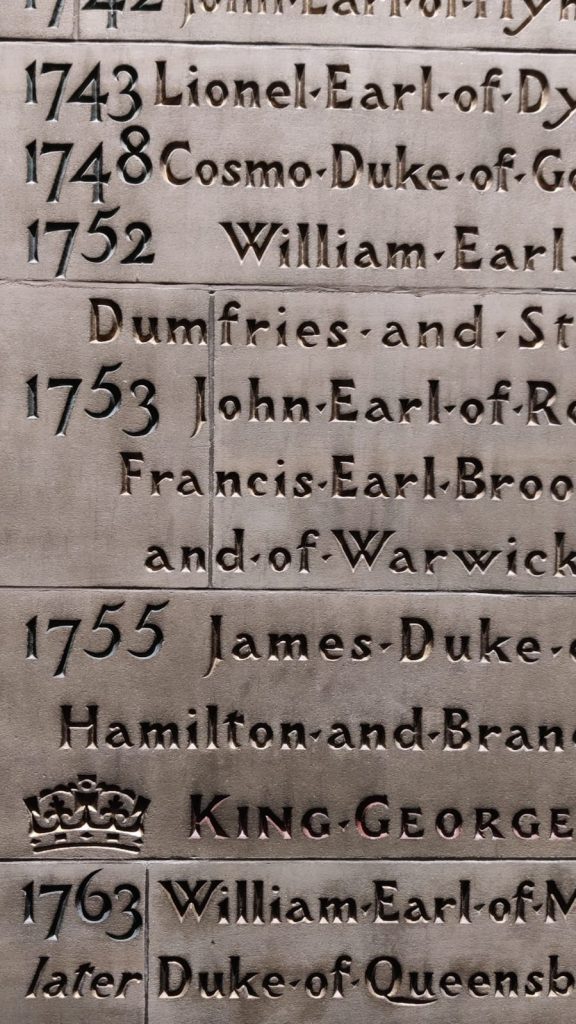 1742 John·Earl·of·Hyn
1743 Lionel·Earl·of·Dy
1748 Cosmo·Duke·of·Go
1752 William·Earl·
Dumfries·and·St
1753 John·Earl·of·Ro
Francis·Earl·Broo
and·of·Warwick
1755 James·Duke·
Hamilton·and·Bran
KING·GEORGE
1763 William·Earl·of·M
later Duke·of·Queensb